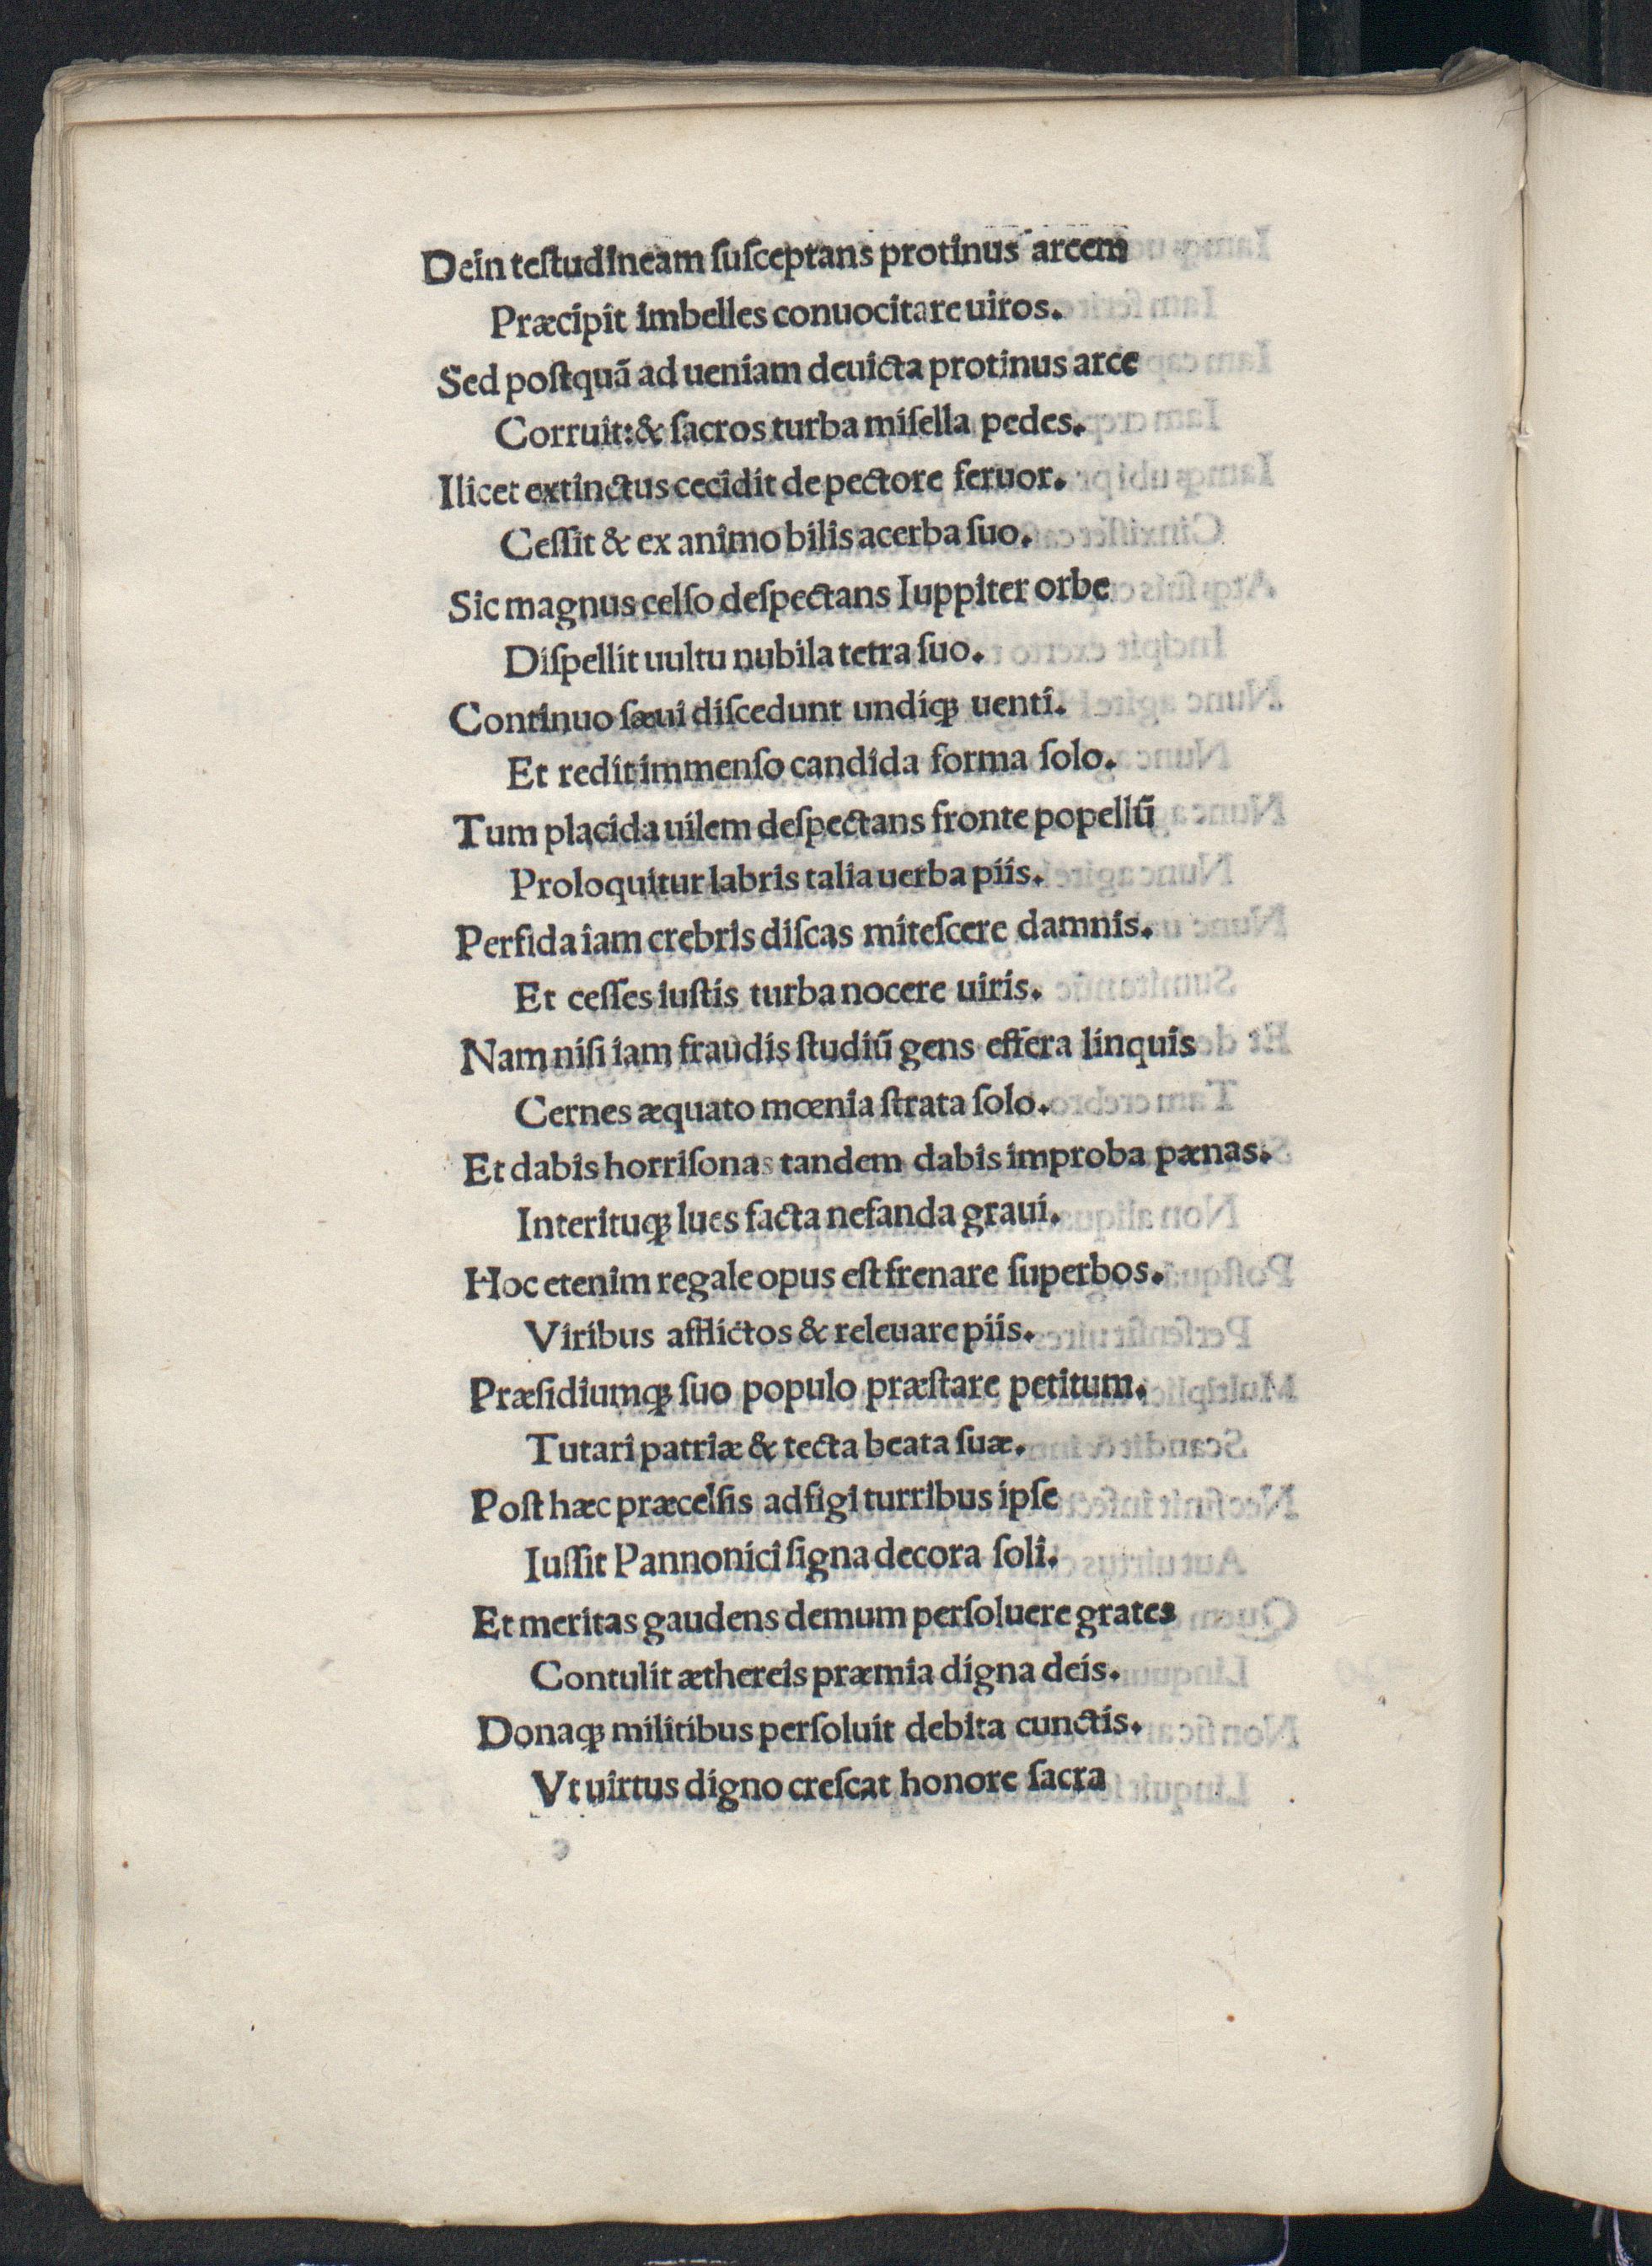 Dein teſtudineam ſuſceptans protinus arcem
Præcipit imbelles conuocitare uiros.
Sed poſtquã ad ueniam deuicta protinus arce
Corruit:& ſacros turba miſella pedes.
Ilicet extinctus cecidit de pectore feruor.
Ceſſit & ex animo bilis acerba ſuo.
Sic magnus celſo deſpectans Iuppiter orbe
Diſpellit uultu nubila tetra ſuo.
Continuo ſæui diſcedunt undiqꝫ uenti.
Et redit immenſo candida forma ſolo.
Tum placida uilem deſpectans fronte popellũ
Proloquitur labris talia uerba piis.
Perfida iam crebris diſcas miteſcere damnis.
Et ceſſes iuſtis turba nocere uiris.
Nam niſi iam fraudis ſtudiũ gens effera linquis
Cernes æquato mœnia ſtrata ſolo.
Et dabis horriſonas tandem dabis improba pænas.
Interituqꝫ lues facta nefanda graui.
Hoc etenim regale opus eſt frenare ſuperbos.
Viribus afflictos & releuare piis.
Præſidiumqꝫ ſuo populo præſtare petitum.
Tutari patriæ & tecta beata ſuæ.
Poſt hæc præcelſis adfigi turribus ipſe
Iuſſit Pannonici ſigna decora ſoli.
Et meritas gaudens demum perſoluere grates
Contulit æthereis præmia digna deis.
Donaqꝫ militibus perſoluit debita cunctis.
Vt uirtus digno creſcat honore ſacra